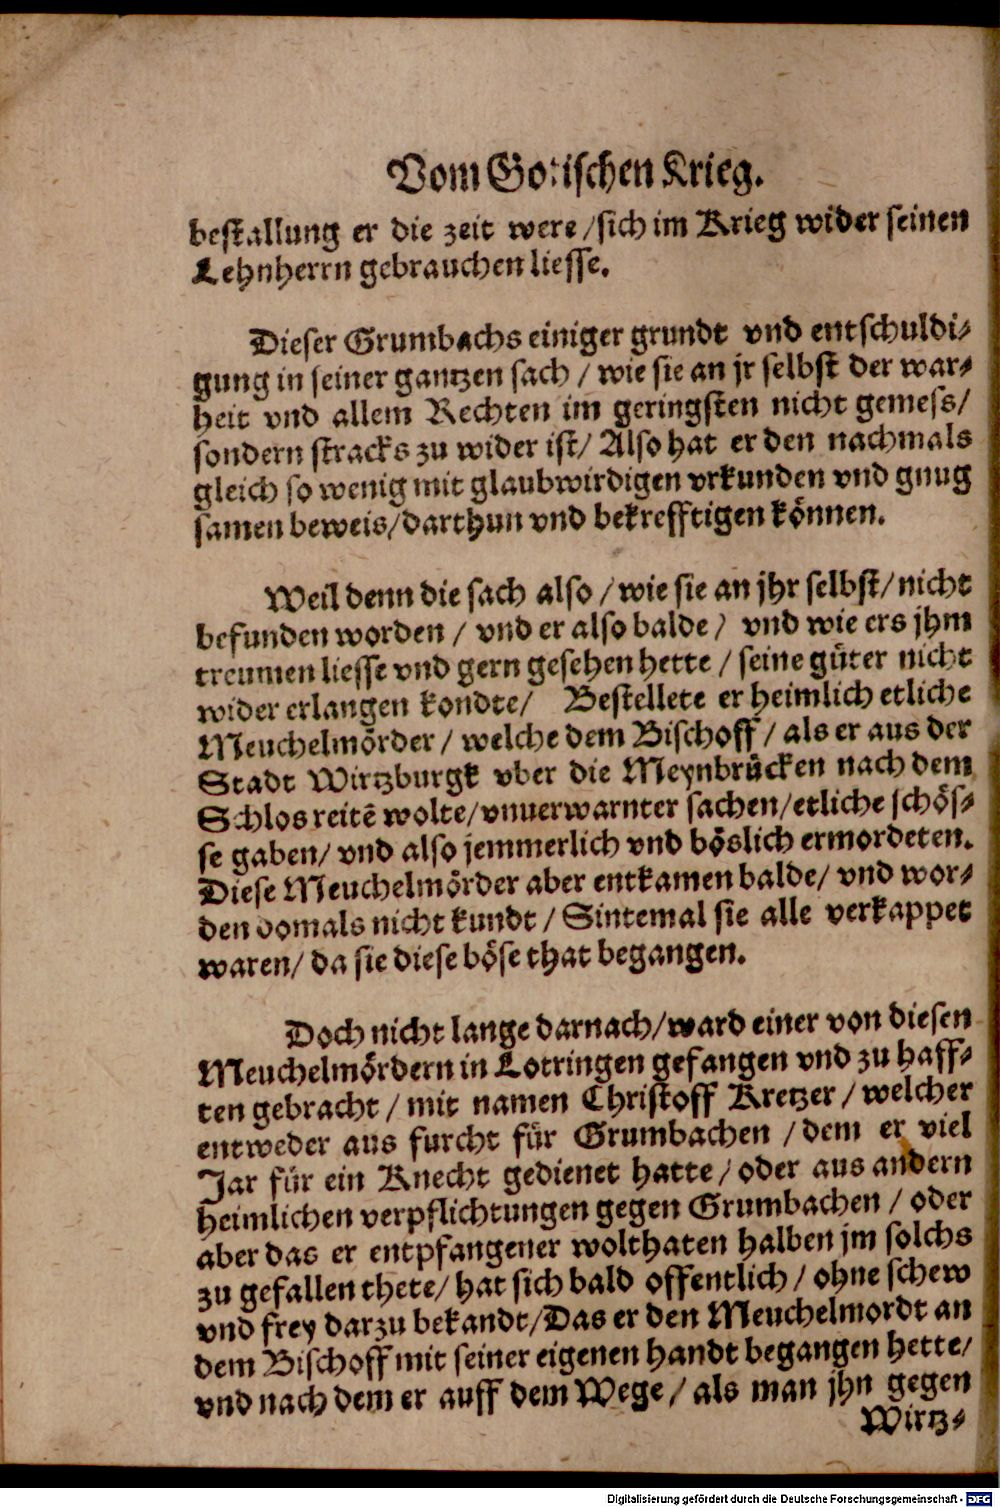 Vom Gotischen Krieg.
bestallung er die zeit were / sich im Krieg wider seinen
Lehnherrn gebrauchen liesse.
Dieser Grumbachs einiger grundt vnd entschuldi⸗
gung in seiner gantzen sach / wie sie an jr selbst der war⸗
heit vnd allem Rechten im geringsten nicht gemess /
sondern stracks zu wider ist / Also hat er den nachmals
gleich so wenig mit glaubwirdigen vrkunden vnd gnug
samen beweis / darthun vnd bekrefftigen können.
Weil denn die sach also / wie sie an jhr selbst / nicht
befunden worden / vnd er also balde / vnd wie ers jhm
treumen liesse vnd gern gesehen hette / seine güter nicht
wider erlangen kondte / Bestellete er heimlich etliche
Meuchelmörder / welche dem Bischoff / als er aus der
Stadt Wirtzburgk vber die Meynbrücken nach dem
Schlos reitē wolte / vnuerwarnter sachen / etliche schös⸗
se gaben / vnd also jemmerlich vnd böslich ermordeten.
Diese Meuchelmörder aber entkamen balde / vnd wor⸗
den domals nicht kundt / Sintemal sie alle verkappet
waren / da sie diese böse that begangen.
Doch nicht lange darnach / ward einer von diesen
Meuchelmördern in Lotringen gefangen vnd zu haff⸗
ten gebracht / mit namen Christoff Kretzer / welcher
entweder aus furcht für Grumbachen / dem er viel
Jar für ein Knecht gedienet hatte / oder aus andern
heimlichen verpflichtungen gegen Grumbachen / oder
aber das er entpfangener wolthaten halben jm solchs
zu gefallen thete / hat sich bald offentlich / ohne schew
vnd frey darzu bekandt / Das er den Meuchelmordt an
dem Bischoff mit seiner eigenen handt begangen hette /
vnd nach dem er auff dem Wege / als man jhn gegen
Wirtz⸗
Digitalisierung gefördert durch die Deutsche Forschungsgemeinschaft - DFG